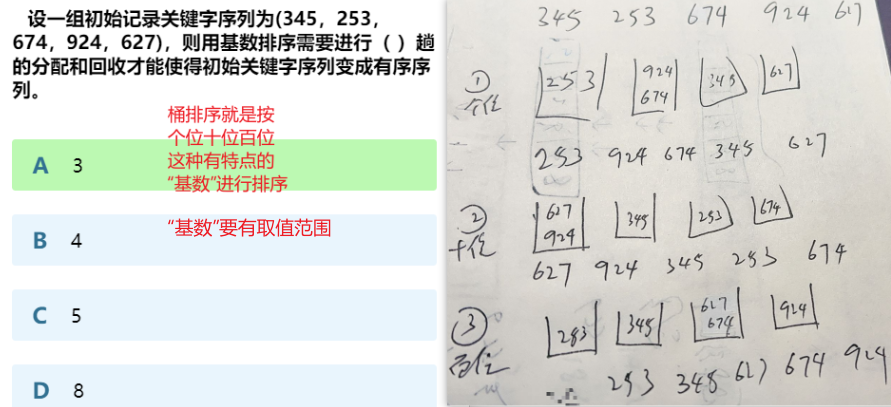 设一组初始记录关键字序列为(345，253，
674，924，627)，则用基数排序需要进行（ ）趟
的分配和回收才能使得初始关键字序列变成有序序
列。
桶排序就是按
个位十位百位
这种有特点的
“基数”进行排序
A 3
“基数”要有取值范围
B 4
C 5
D 8
345 253 674 924 627
① 个位
253 924 345 627
674
253 924 674 345 627
② 十位
627 345 253 674
924
627 924 345 253 674
③ 百位
253 345 627 924
674
253 345 627 674 924